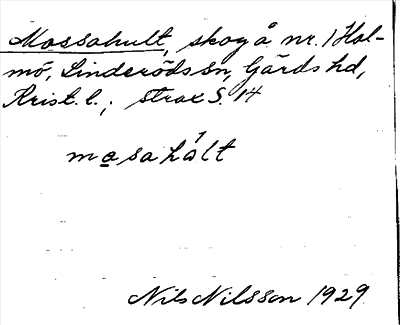 Mossahult, skog å nr. 1 Hol-
mö, Linderöds sn, Gärds hd,
Krist. l., strax S. 14
masahalt
Nils Nilsson 1929